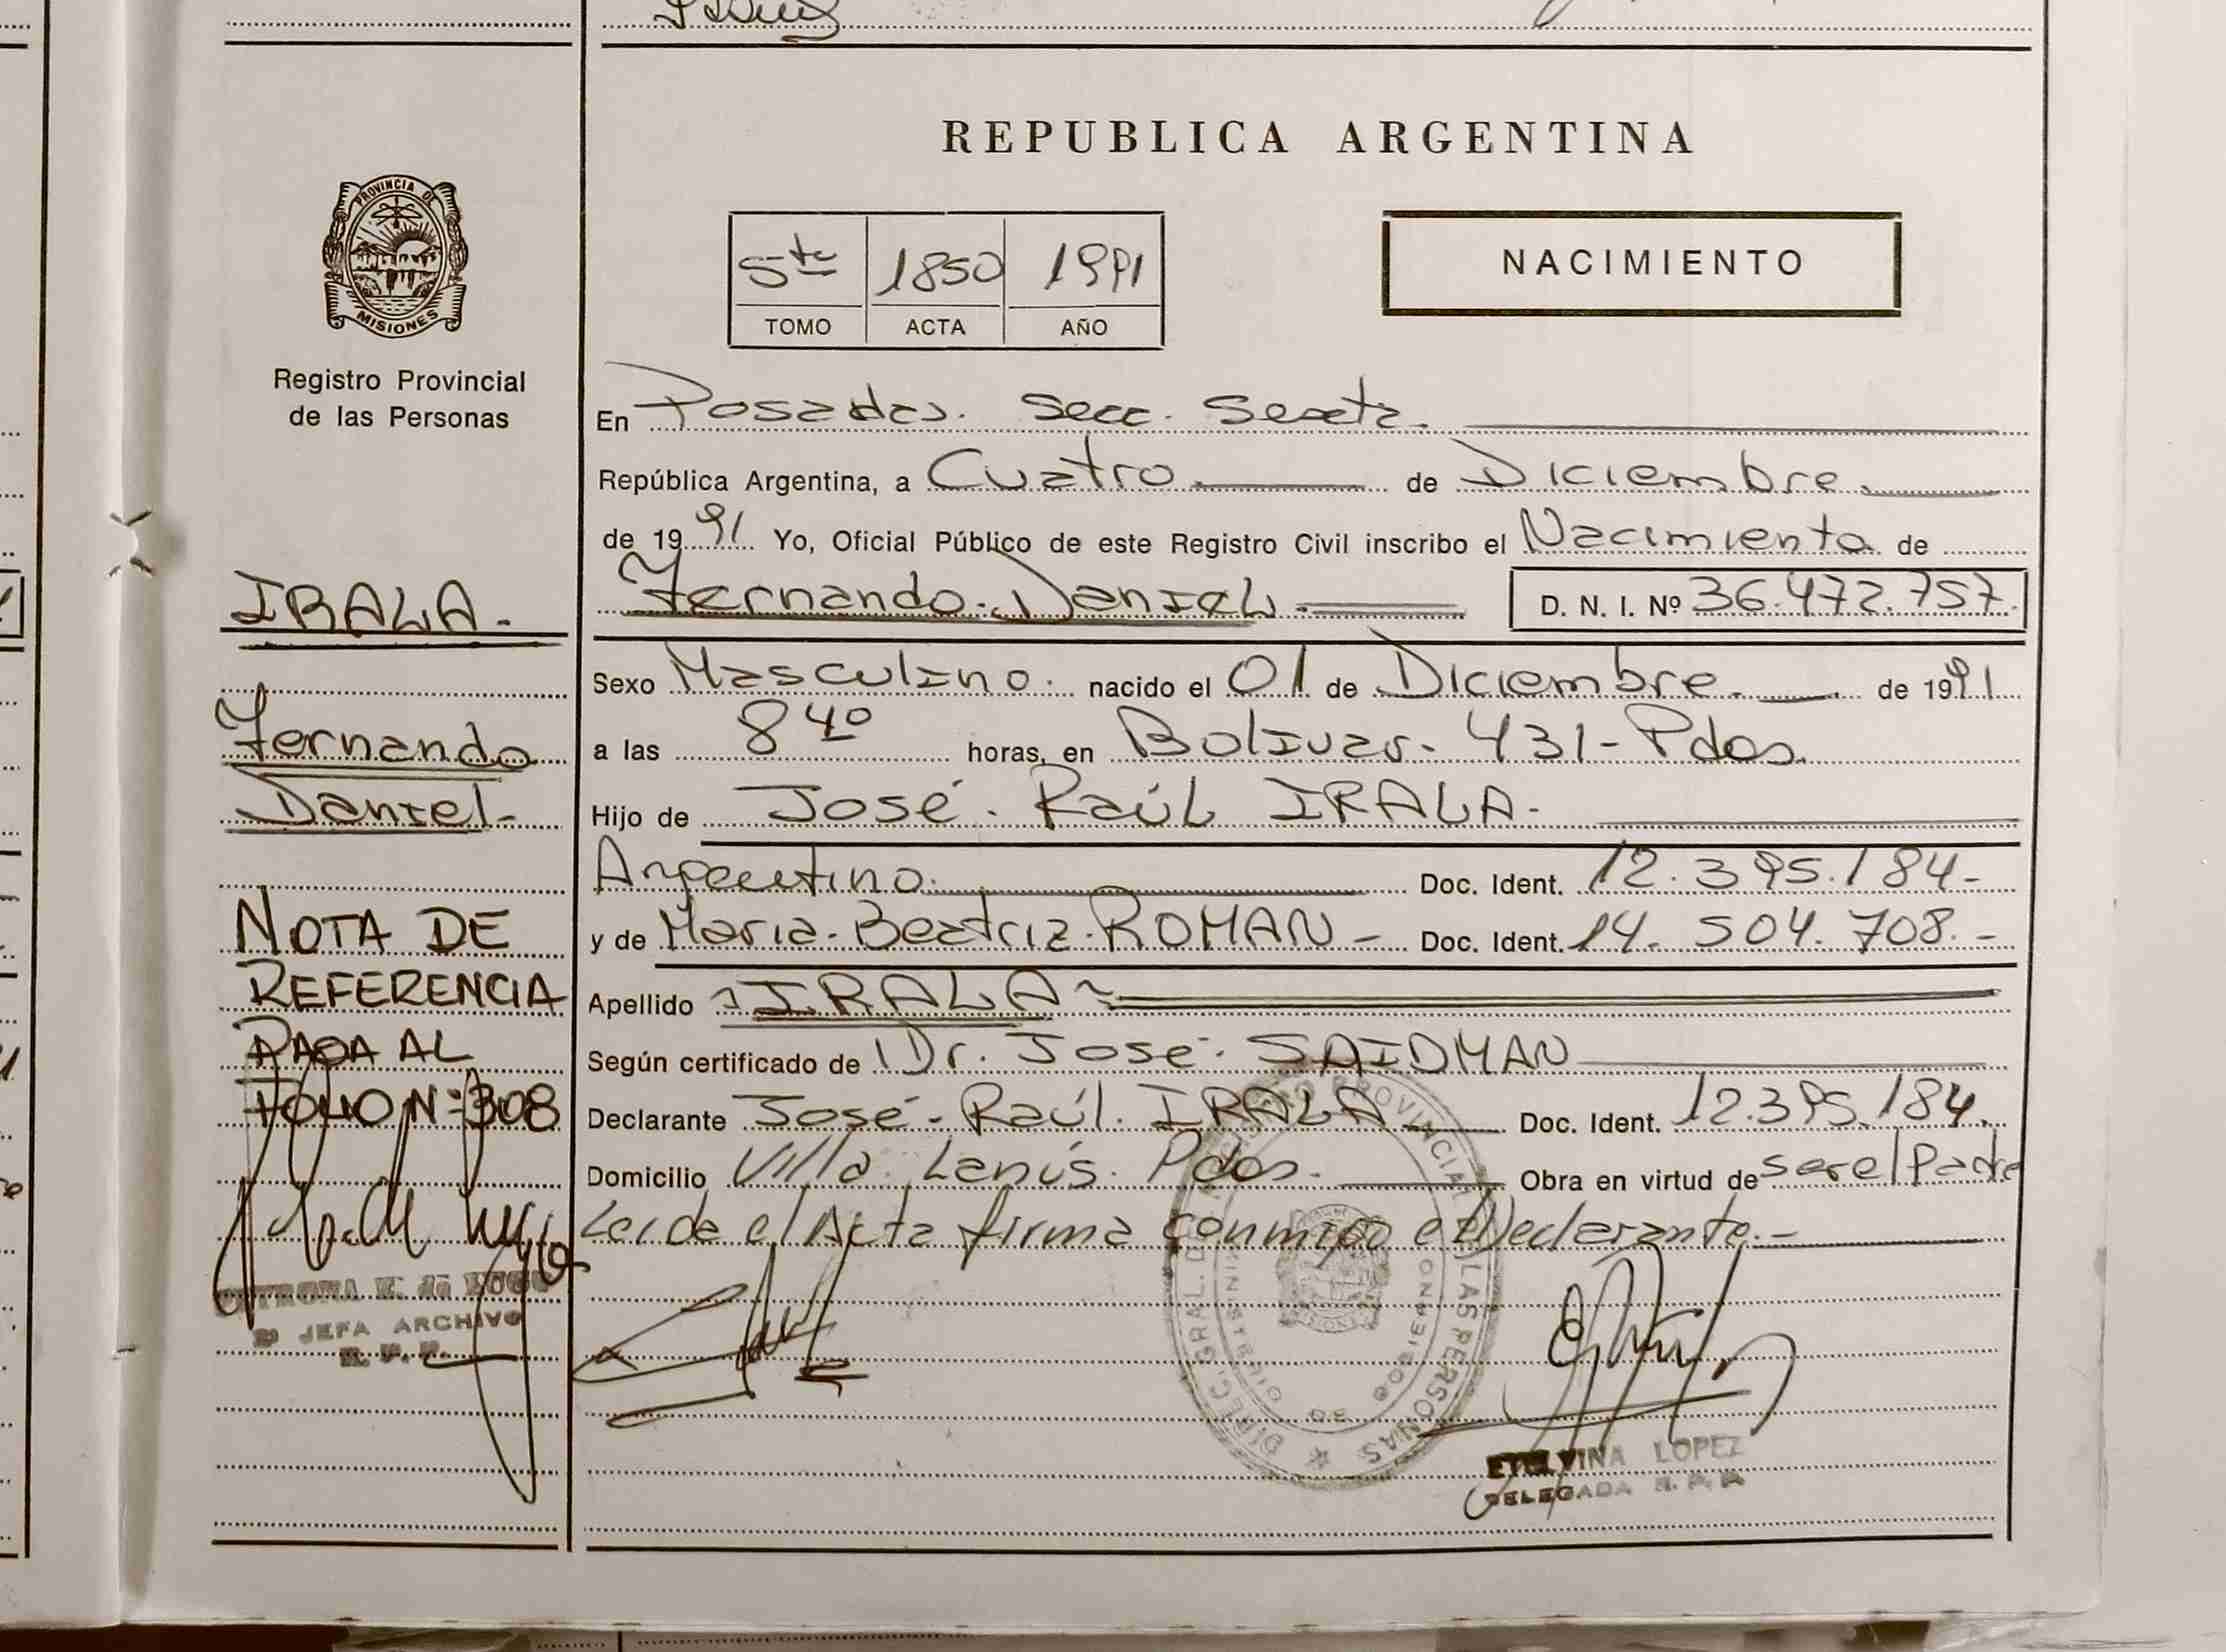 REPUBLICA ARGENTINA
PROVINCIA DE
MISIONES
Registro Provincial
de las Personas
5to 1850 1991
TOMO ACTA AÑO
NACIMIENTO
En Posadas. Secc. Sexta.
República Argentina, a Cuatro de Diciembre.
de 1991 Yo, Oficial Público de este Registro Civil inscribo el Nacimiento de
Fernando. Daniel. D. N. I. Nº 36.472.757.
Sexo Masculino. nacido el 01 de Diciembre. de 1991
a las 8 40 horas, en Bolivar. 431- Pdas.
Hijo de José. Raúl IRALA.
Argentino. Doc. Ident. 12.395.184-
y de Maria. Beatriz. ROMAN - Doc. Ident. 14.504.708.-
Apellido IRALA
Según certificado de Dr. José. SAIDMAN
Declarante José. Raúl. IRALA Doc. Ident. 12.395.184.
Domicilio Villa. Lanús. Pdas. Obra en virtud de ser el Padre
Leida el Acta firma conmigo el Declarante.-
IRALA.
Fernando
Daniel-
NOTA DE
REFERENCIA
PASA AL
FOLIO Nº 308
JEFA ARCHIVO
R. P. P.
DIREC. GRAL. DEL REGISTRO PROVINCIAL DE LAS PERSONAS
MINISTERIO DE GOBIERNO
MISIONES
ETELVINA LOPEZ
DELEGADA R. P. P.